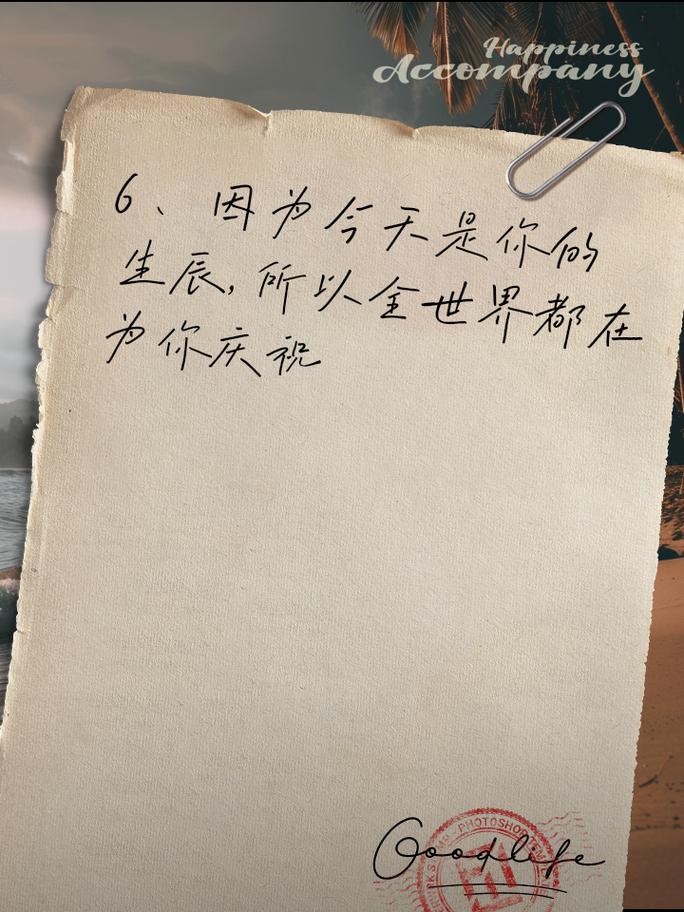 Happiness
Accompany
6、因为今天是你的
生辰,所以全世界都在
为你庆祝
Goodlife